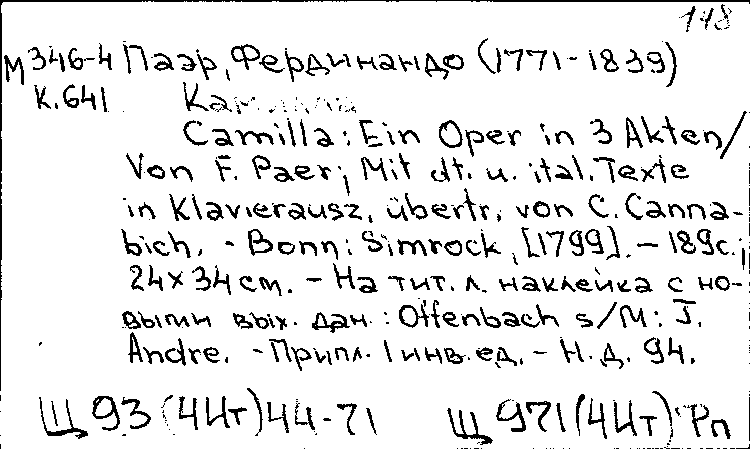 118
М 346-4 Паэр, Фердинандо (1771-1839)
К.641 Камилла
Camilla: Ein Oper in 3 Akten/
Von F. Paer; Mit dt. u. ital. Texte
in Klavierausz. übertr. von C. Canna-
bich. - Bonn: Simrock, [1799]. - 189с.;
24x34 cm. - На тит. л. наклейка с но-
выми вых. дан.: Offenbach s/M: J.
Andre. - Припл. 1 инв. ед. - Н. д. 94.
Щ 93(4Ит)44-71 Щ 971(4Ит) Рп